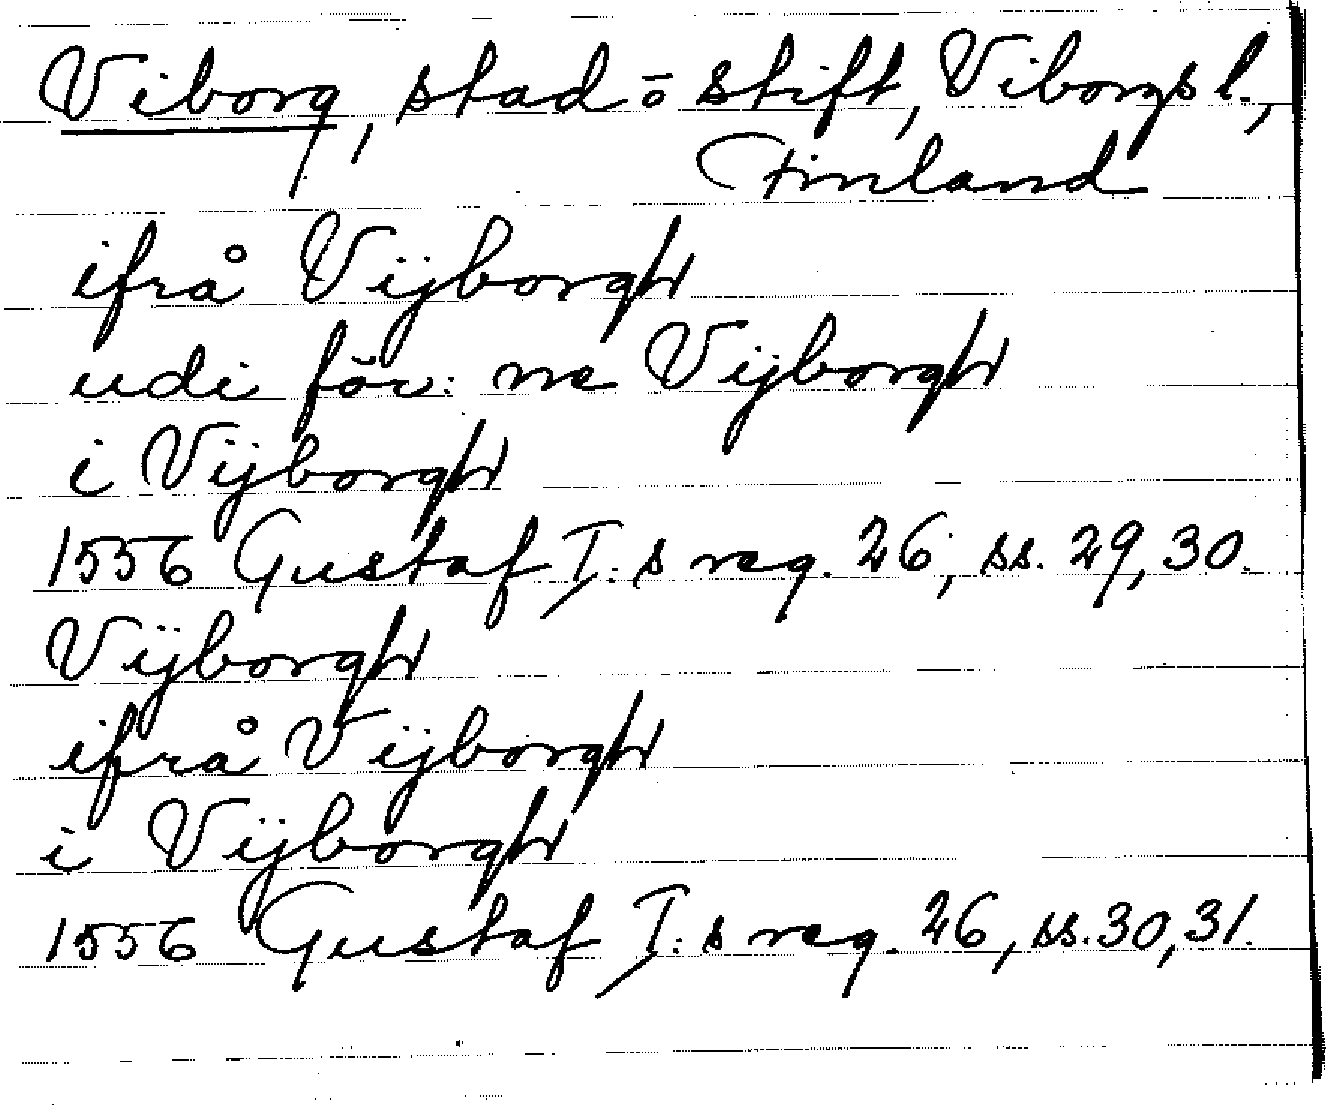 Viborg, stad o stift, Viborgs l.,
Finland
ifrå Vijborgh
udi för: ne Vijborgh
i Vijborgh
1556 Gustaf I:s reg. 26, ss. 29, 30.
Vijborgh
ifrå Vijborgh
i Vijborgh
1556 Gustaf I:s reg. 26, ss. 30, 31.